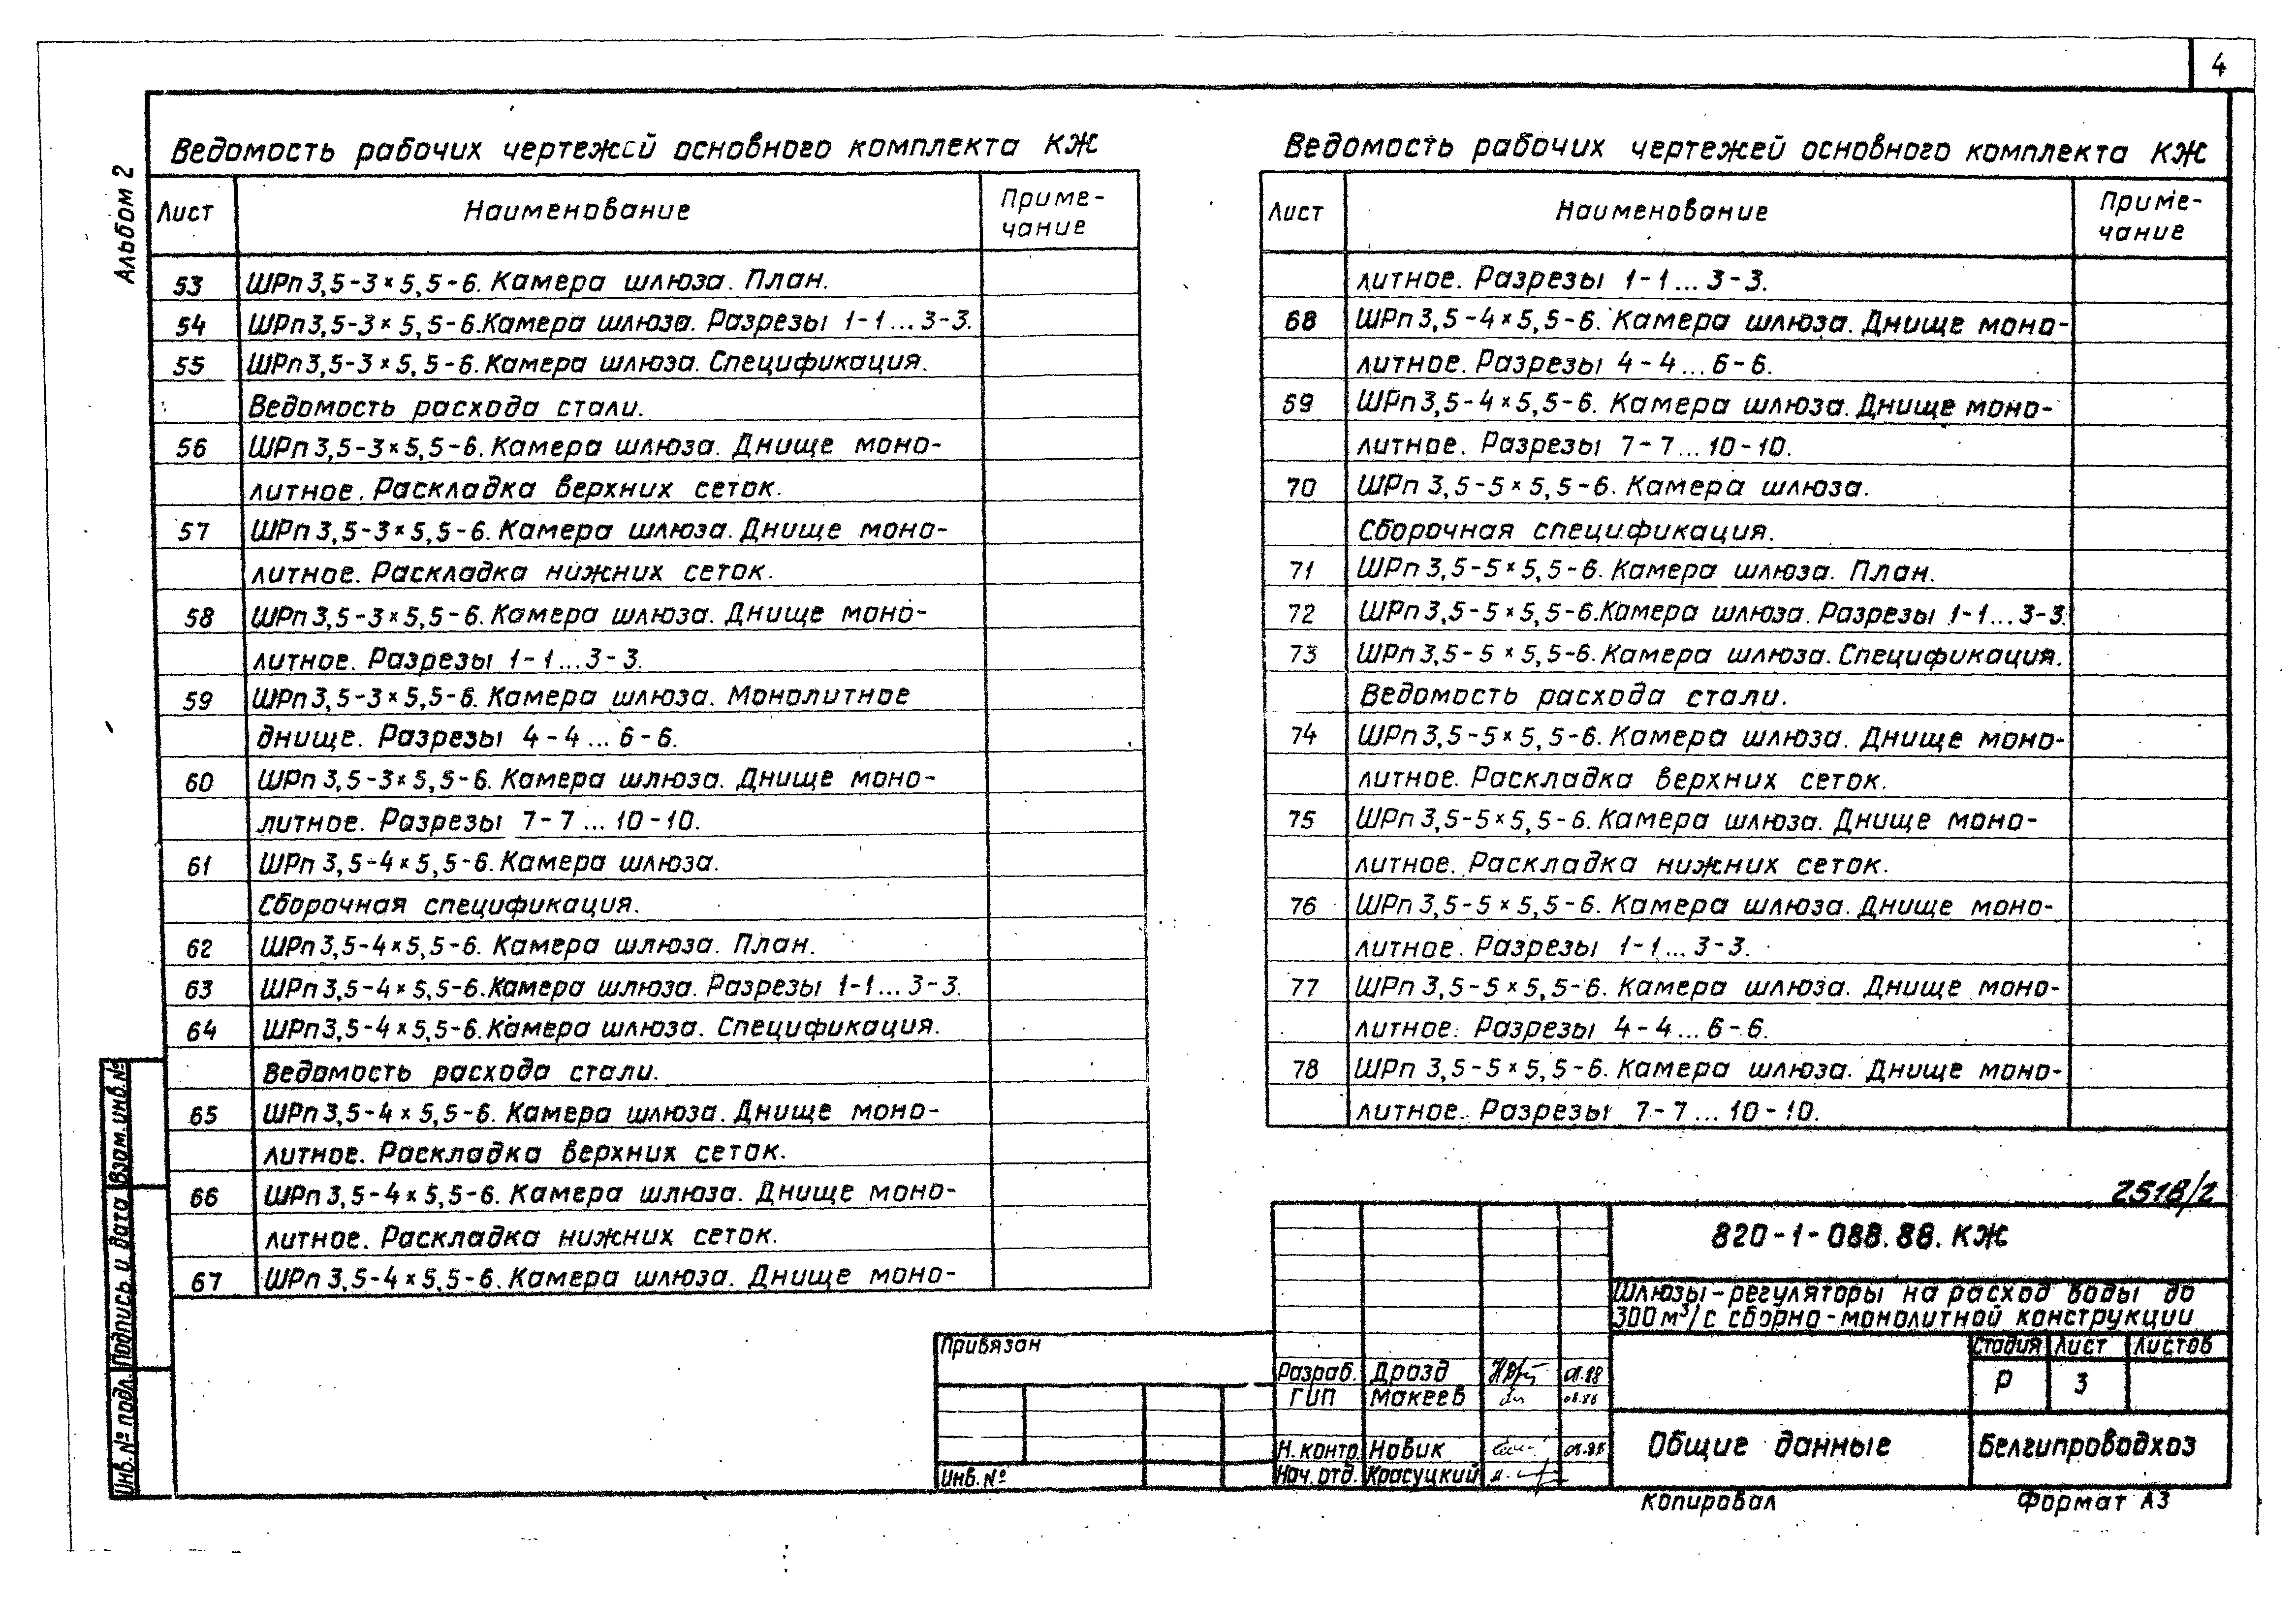 4
Альбом 2
Ведомость рабочих чертежей основного комплекта КЖ
Лист Наименование Приме-
чание
53 ШРп 3,5-3×5,5-6. Камера шлюза. План.
54 ШРп 3,5-3×5,5-6. Камера шлюза. Разрезы 1-1...3-3.
55 ШРп 3,5-3×5,5-6. Камера шлюза. Спецификация.
Ведомость расхода стали.
56 ШРп 3,5-3×5,5-6. Камера шлюза. Днище моно-
литное. Раскладка верхних сеток.
57 ШРп 3,5-3×5,5-6. Камера шлюза. Днище моно-
литное. Раскладка нижних сеток.
58 ШРп 3,5-3×5,5-6. Камера шлюза. Днище моно-
литное. Разрезы 1-1...3-3.
59 ШРп 3,5-3×5,5-6. Камера шлюза. Монолитное
днище. Разрезы 4-4...6-6.
60 ШРп 3,5-3×5,5-6. Камера шлюза. Днище моно-
литное. Разрезы 7-7...10-10.
61 ШРп 3,5-4×5,5-6. Камера шлюза.
Сборочная спецификация.
62 ШРп 3,5-4×5,5-6. Камера шлюза. План.
63 ШРп 3,5-4×5,5-6. Камера шлюза. Разрезы 1-1...3-3.
64 ШРп 3,5-4×5,5-6. Камера шлюза. Спецификация.
Ведомость расхода стали.
65 ШРп 3,5-4×5,5-6. Камера шлюза. Днище моно-
литное. Раскладка верхних сеток.
66 ШРп 3,5-4×5,5-6. Камера шлюза. Днище моно-
литное. Раскладка нижних сеток.
67 ШРп 3,5-4×5,5-6. Камера шлюза. Днище моно-
Ведомость рабочих чертежей основного комплекта КЖ
Лист Наименование Приме-
чание
литное. Разрезы 1-1...3-3.
68 ШРп 3,5-4×5,5-6. Камера шлюза. Днище моно-
литное. Разрезы 4-4...6-6.
69 ШРп 3,5-4×5,5-6. Камера шлюза. Днище моно-
литное. Разрезы 7-7...10-10.
70 ШРп 3,5-5×5,5-6. Камера шлюза.
Сборочная спецификация.
71 ШРп 3,5-5×5,5-6. Камера шлюза. План.
72 ШРп 3,5-5×5,5-6. Камера шлюза. Разрезы 1-1...3-3.
73 ШРп 3,5-5×5,5-6. Камера шлюза. Спецификация.
Ведомость расхода стали.
74 ШРп 3,5-5×5,5-6. Камера шлюза. Днище моно-
литное. Раскладка верхних сеток.
75 ШРп 3,5-5×5,5-6. Камера шлюза. Днище моно-
литное. Раскладка нижних сеток.
76 ШРп 3,5-5×5,5-6. Камера шлюза. Днище моно-
литное. Разрезы 1-1...3-3.
77 ШРп 3,5-5×5,5-6. Камера шлюза. Днище моно-
литное. Разрезы 4-4...6-6.
78 ШРп 3,5-5×5,5-6. Камера шлюза. Днище моно-
литное. Разрезы 7-7...10-10.
2518/2
820-1-088.88.КЖ
Шлюзы-регуляторы на расход воды до
300 м³/с сборно-монолитной конструкции
Стадия Лист Листов
Р 3
Общие данные
Белгипроводхоз
Привязан
Инв. №
Разраб. Дрозд 08.88
ГИП Макеев
Н. контр. Новик 08.88
Нач. отд. Красуцкий
Копировал Формат А3
Взам. инв. №
Подпись и дата
Инв. № подл.